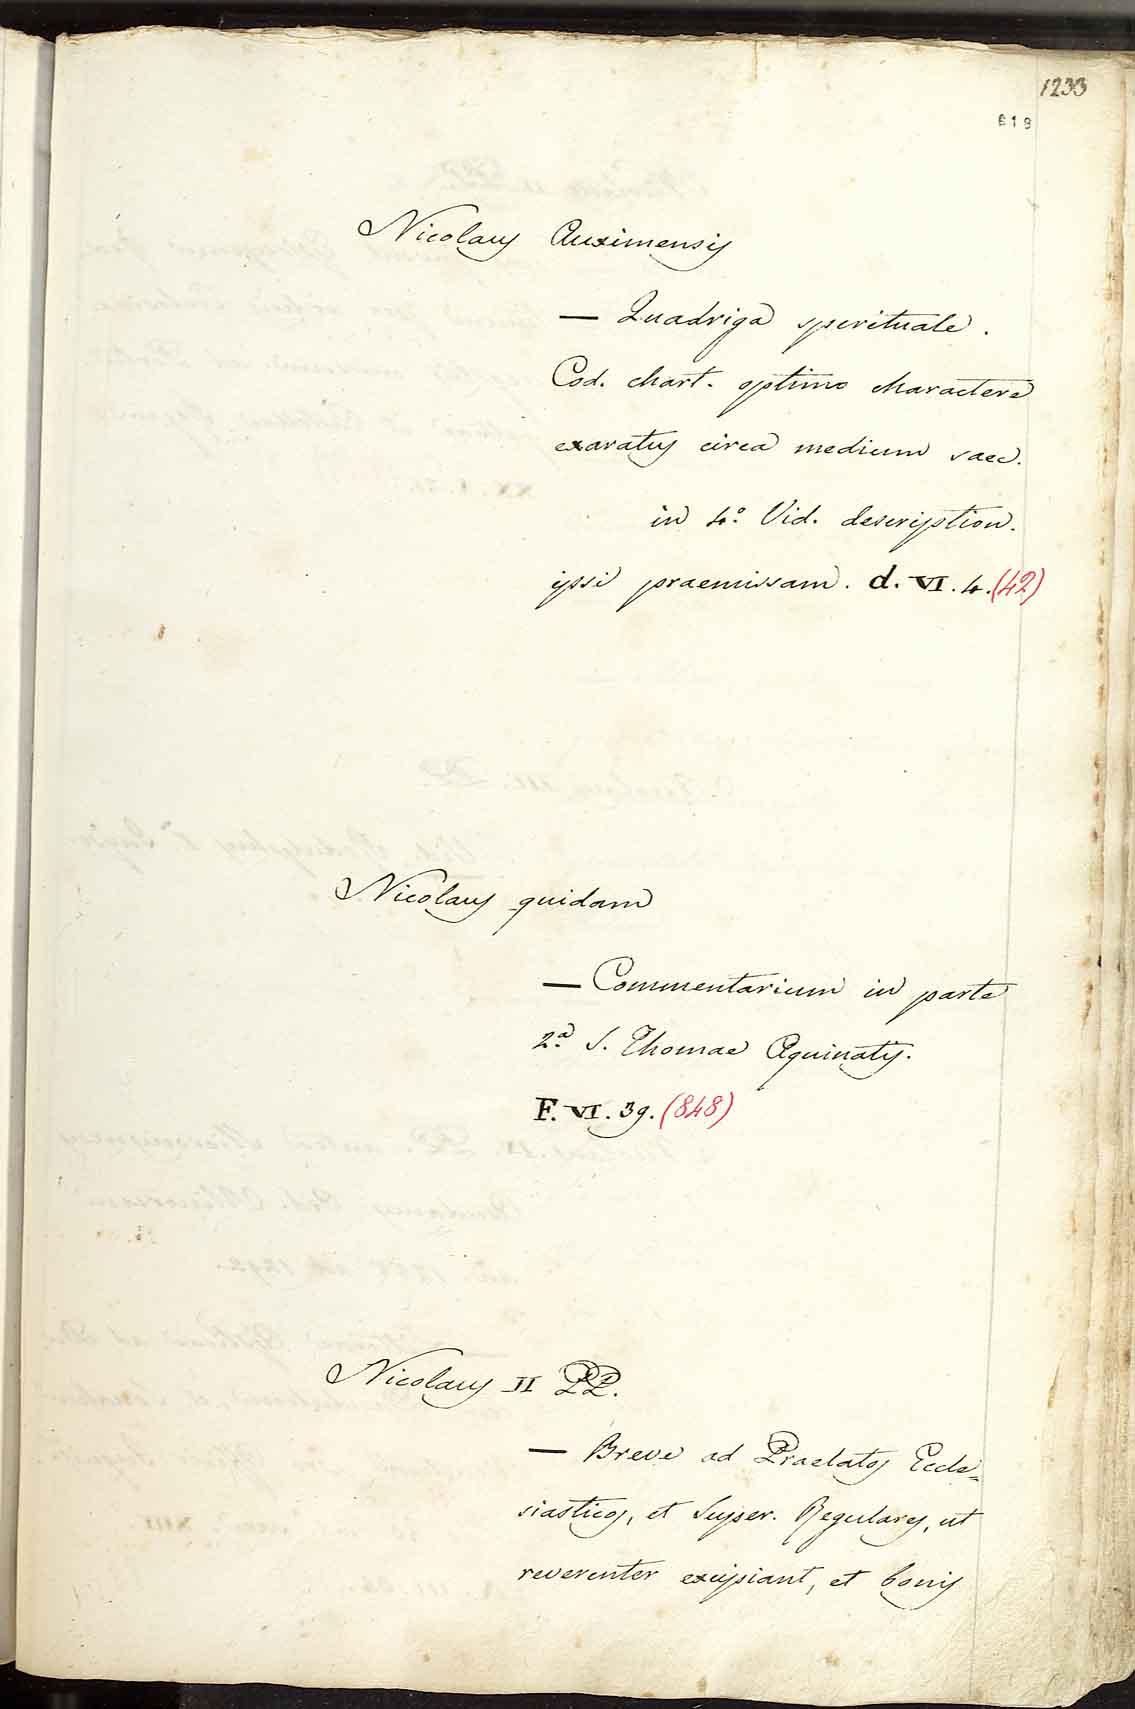 1233
619
Nicolaus Auximensis
— Quadriga spirituale.
Cod. chart. optimo charactere
exaratus circa medium saec.
in 4.° Vid. description.
ipsi praemissam. d. VI. 4. (42)
Nicolaus quidam
— Commentarium in parte
2.ª S. Thomae Aquinatis.
F. VI. 39. (848)
Nicolaus II PP.
— Breve ad Praelatos Eccle=
siasticos, et Super. Regulares, ut
reverenter excipiant, et bonis